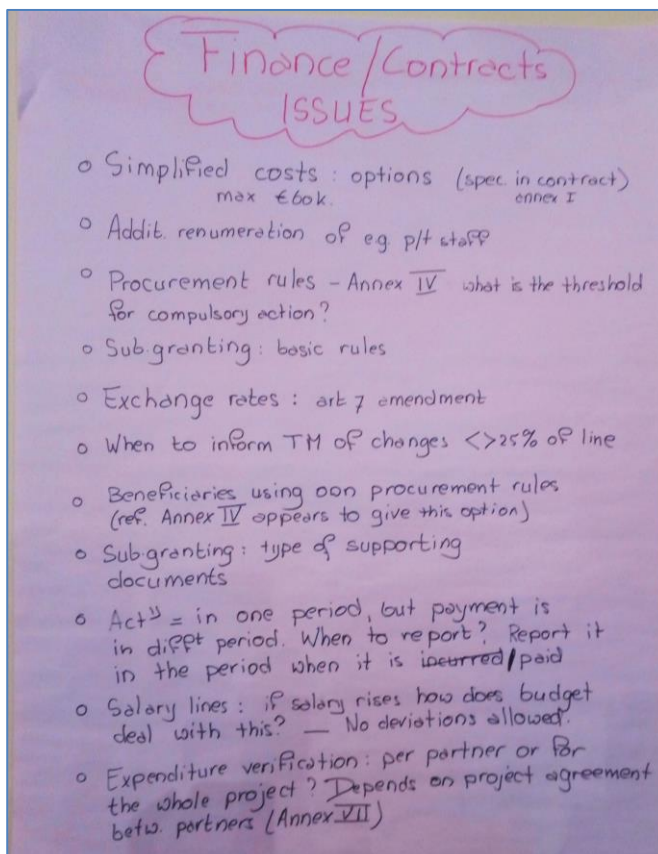 Finance/Contracts
ISSUES
o Simplified costs : options (spec. in contract)
max €60k. annex I
o Addit. renumeration of eg. p/t staff
o Procurement rules - Annex IV what is the threshold
for compulsory action?
o Sub.granting : basic rules
o Exchange rates : art 7 amendment
o When to inform TM of changes <>25% of line
o Beneficiaries using oon procurement rules
(ref. Annex IV appears to give this option)
o Sub.granting : type of supporting
documents
o Act^y = in one period, but payment is
in diff^t period. When to report? Report it
in the period when it is incurred/paid
o Salary lines : if salary rises how does budget
deal with this? — No deviations allowed.
o Expenditure verification : per partner or for
the whole project? Depends on project agreement
betw. partners (Annex VII)